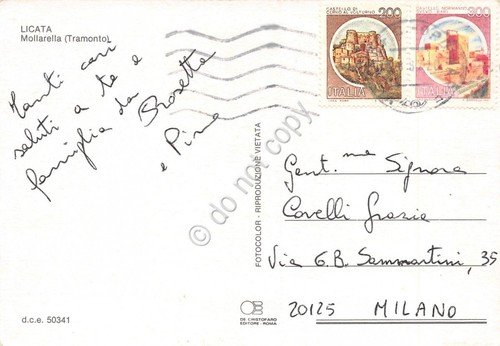 LICATA
Mollarella (Tramonto)
Tanti cari
saluti a te e
famiglia da
Rosetta
e Pina
CASTELLO DI
CERRO AL VOLTURNO 200
ITALIA
CASTELLO NORMANNO
300
ITALIA
do not copy
FOTOCOLOR - RIPRODUZIONE VIETATA
Gent.me Signora
Covelli Grazia
Via G.B. Sammartini, 35
20125 MILANO
d.c.e. 50341
DE CRISTOFARO
EDITORE - ROMA